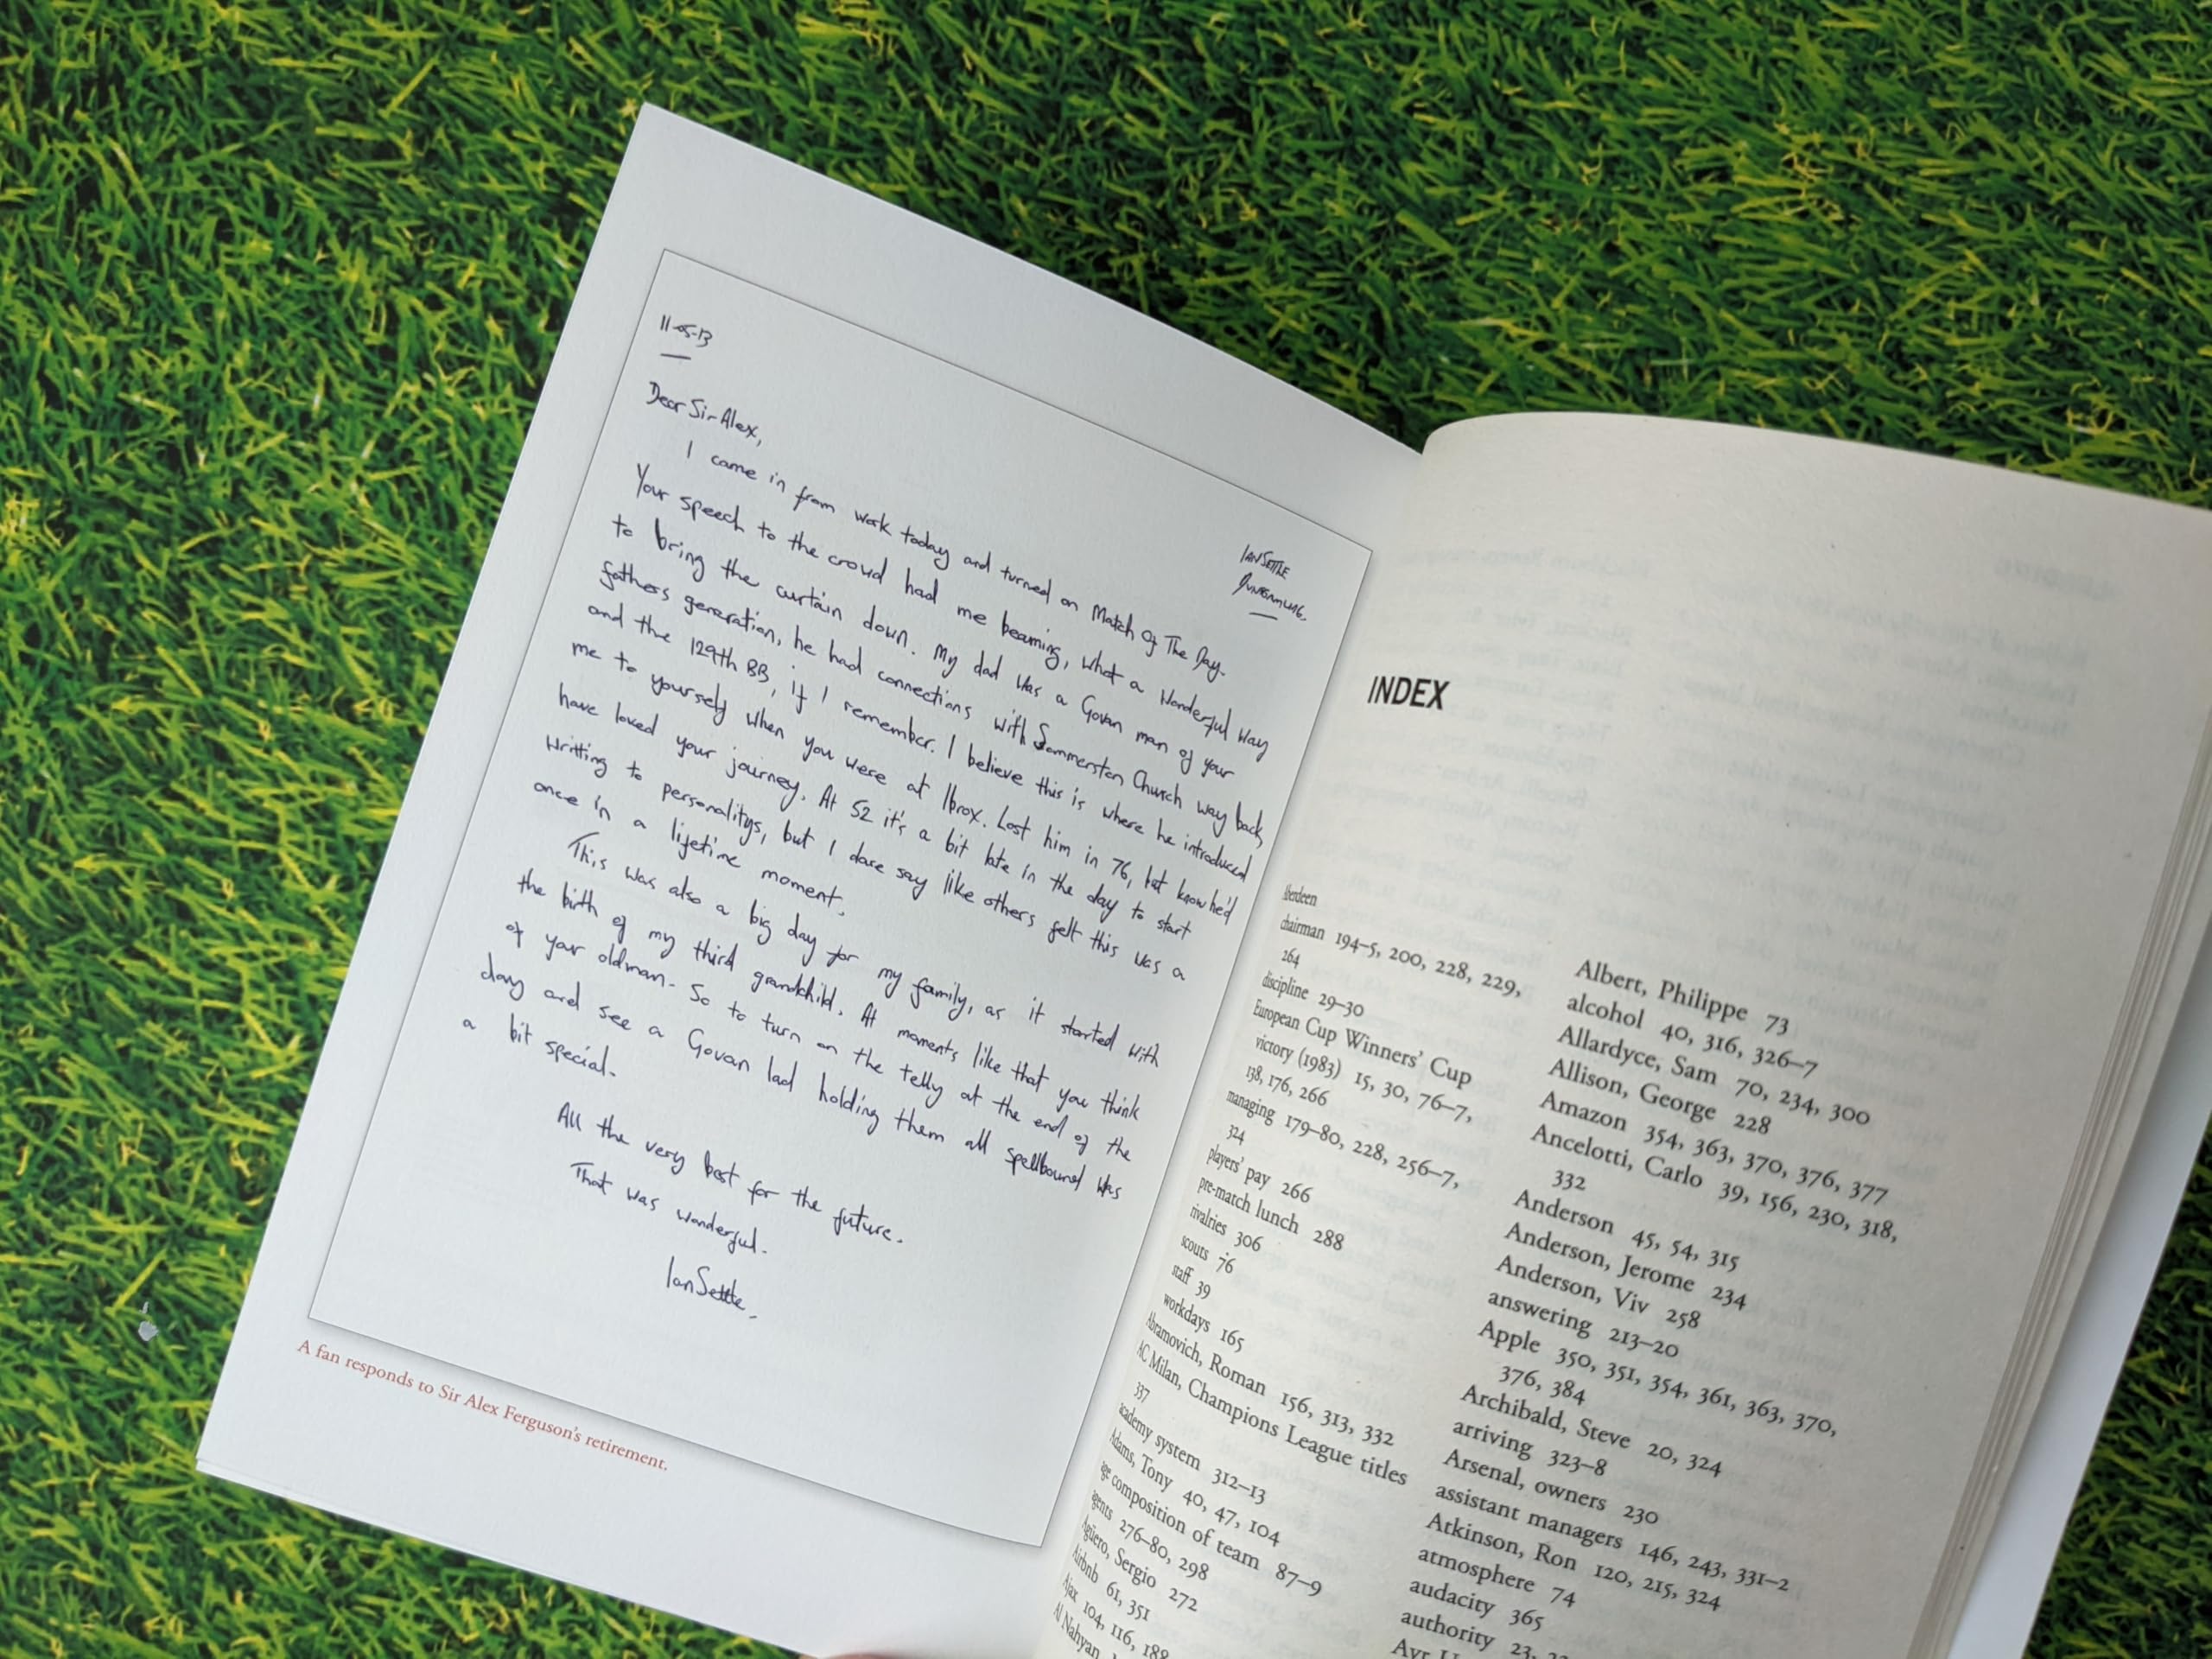 11-05-13
IAN SETTLE
DUNFERMLINE.
Dear Sir Alex,
I came in from work today and turned on Match Of The Day.
Your speech to the croud had me beaming, what a wonderful way
to bring the curtain down. My dad was a Govan man of your
fathers generation, he had connections with Sommerston Church way back,
and the 129th BB, if I remember. I believe this is where he introduced
me to yourself when you were at Ibrox. Lost him in 76, but know he'd
have loved your journey. At 52 it's a bit late in the day to start
writting to personalitys, but I dare say like others felt this was a
once in a lifetime moment.
This was also a big day for my family, as it started with
the birth of my third grandchild. At moments like that you think
of your oldman. So to turn on the telly at the end of the
day and see a Govan lad holding them all spellbound was
a bit special.
All the very best for the future.
That was wonderful.
Ian Settle.
A fan responds to Sir Alex Ferguson's retirement.
INDEX
Aberdeen
chairman 194–5, 200, 228, 229,
264
discipline 29–30
European Cup Winners' Cup
victory (1983) 15, 30, 76–7,
138, 176, 266
managing 179–80, 228, 256–7,
324
players' pay 266
pre-match lunch 288
rivalries 306
scouts 76
staff 39
workdays 165
Abramovich, Roman 156, 313, 332
AC Milan, Champions League titles
337
academy system 312–13
Adams, Tony 40, 47, 104
age composition of team 87–9
agents 276–80, 298
Agüero, Sergio 272
Airbnb 61, 351
Ajax 104, 116, 188
Al Nahyan,
Albert, Philippe 73
alcohol 40, 316, 326–7
Allardyce, Sam 70, 234, 300
Allison, George 228
Amazon 354, 363, 370, 376, 377
Ancelotti, Carlo 39, 156, 230, 318,
332
Anderson 45, 54, 315
Anderson, Jerome 234
Anderson, Viv 258
answering 213–20
Apple 350, 351, 354, 361, 363, 370,
376, 384
Archibald, Steve 20, 324
arriving 323–8
Arsenal, owners 230
assistant managers 146, 243, 331–2
Atkinson, Ron 120, 215, 324
atmosphere 74
audacity 365
authority 23,
Ayr